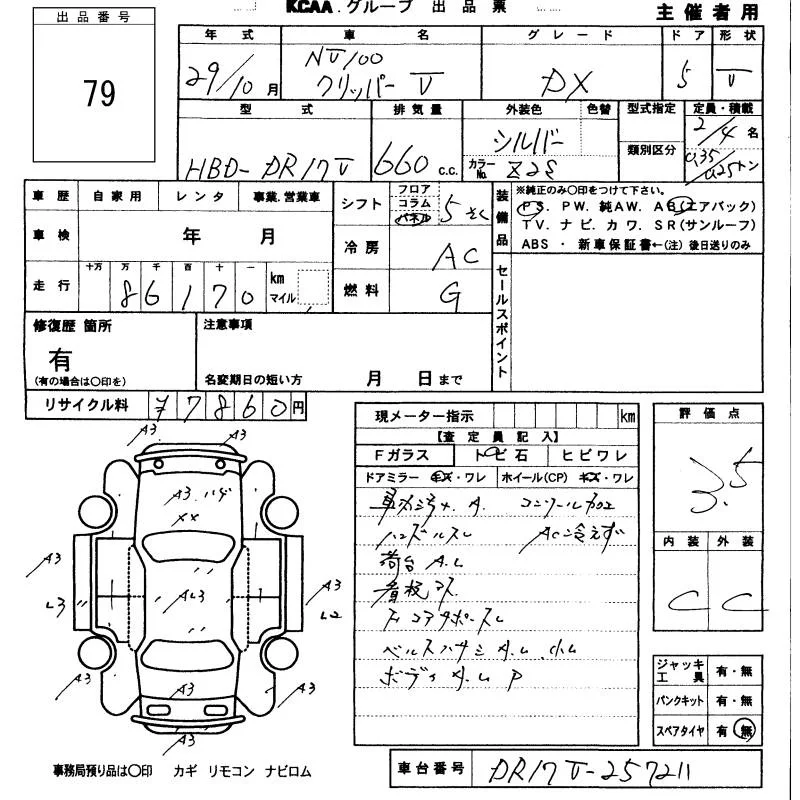 KCAA.グループ 出品票
主催者用
出品番号
79
年式 車名 グレード ドア 形状
29/10月 NV100 クリッパーV DX 5 V
型式 排気量 外装色 色替 型式指定 定員・積載
HBD-DR17V 660 c.c. シルバー カラーNo. Z2S 類別区分 2/4名 0.35/0.25トン
車歴 自家用 レンタ 事業.営業車
シフト フロア コラム パネル 5速
装備品
※純正のみ〇印をつけて下さい。
PS. PW. 純AW. AB(エアバック)
TV. ナビ. カワ. SR(サンルーフ)
ABS ・ 新車保証書←(注)後日送りのみ
車検 年 月
冷房 AC
走行 十万 万 千 百 十 一 km マイル
86170
燃料 G
セールスポイント
修復歴 箇所
有
(有の場合は〇印を)
注意事項
名変期日の短い方 月 日まで
リサイクル料 77860円
現メーター指示 km
【査定員記入】
Fガラス トビ石 ヒビワレ
ドアミラー キズ・ワレ ホイール(CP) キズ・ワレ
A.
ハンドルスレ AC冷えず
荷台 A.L
ボディ P
評価点
3.5
内装 外装
C C
ジャッキ工具 有・無
パンクキット 有・無
スペアタイヤ 有・無
A3 A3
A3.ハゲ
XX
A3 A3
L3 AL3 L2
A3 A3 A3
A3
事務局預り品は〇印 カギ リモコン ナビロム
車台番号 DR17V-257211